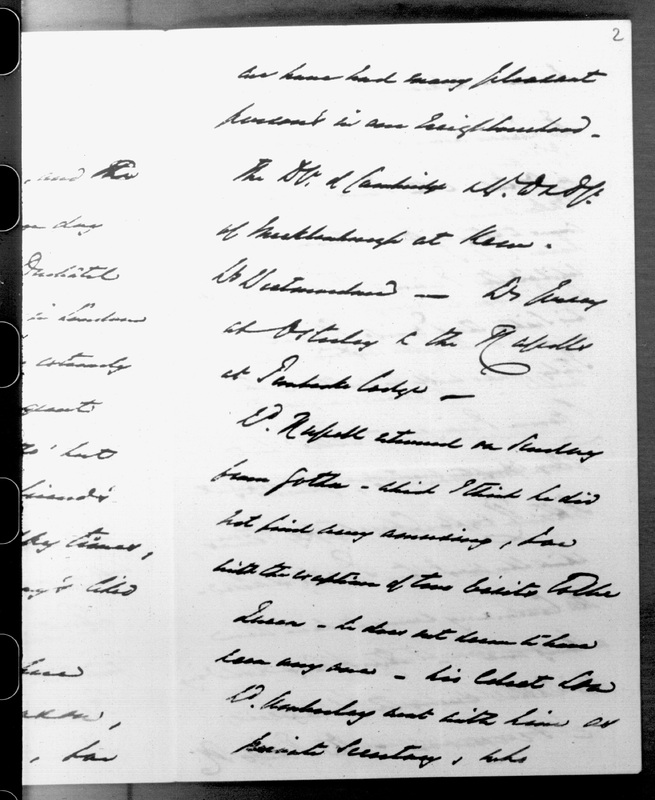 2
we have had many pleasant
persons in our Neighbourhood -
The Ds. of Cambridge &
of Mecklenburgh at Kew -
Ld Westmorland — Ly Jersey
at Osterley & the Russells
at Pembroke Lodge —
Ld. Russell returned on Sunday
from Gotha - which I think he did
not find very amusing, for
with the exception of two visits to the
Queen - he does not seem to have
seen any one - his eldest Son
Ld. Amberley went with him as
private Secretary, who
, and the
day
Duchâtel
in London
but
friends
times,
, for